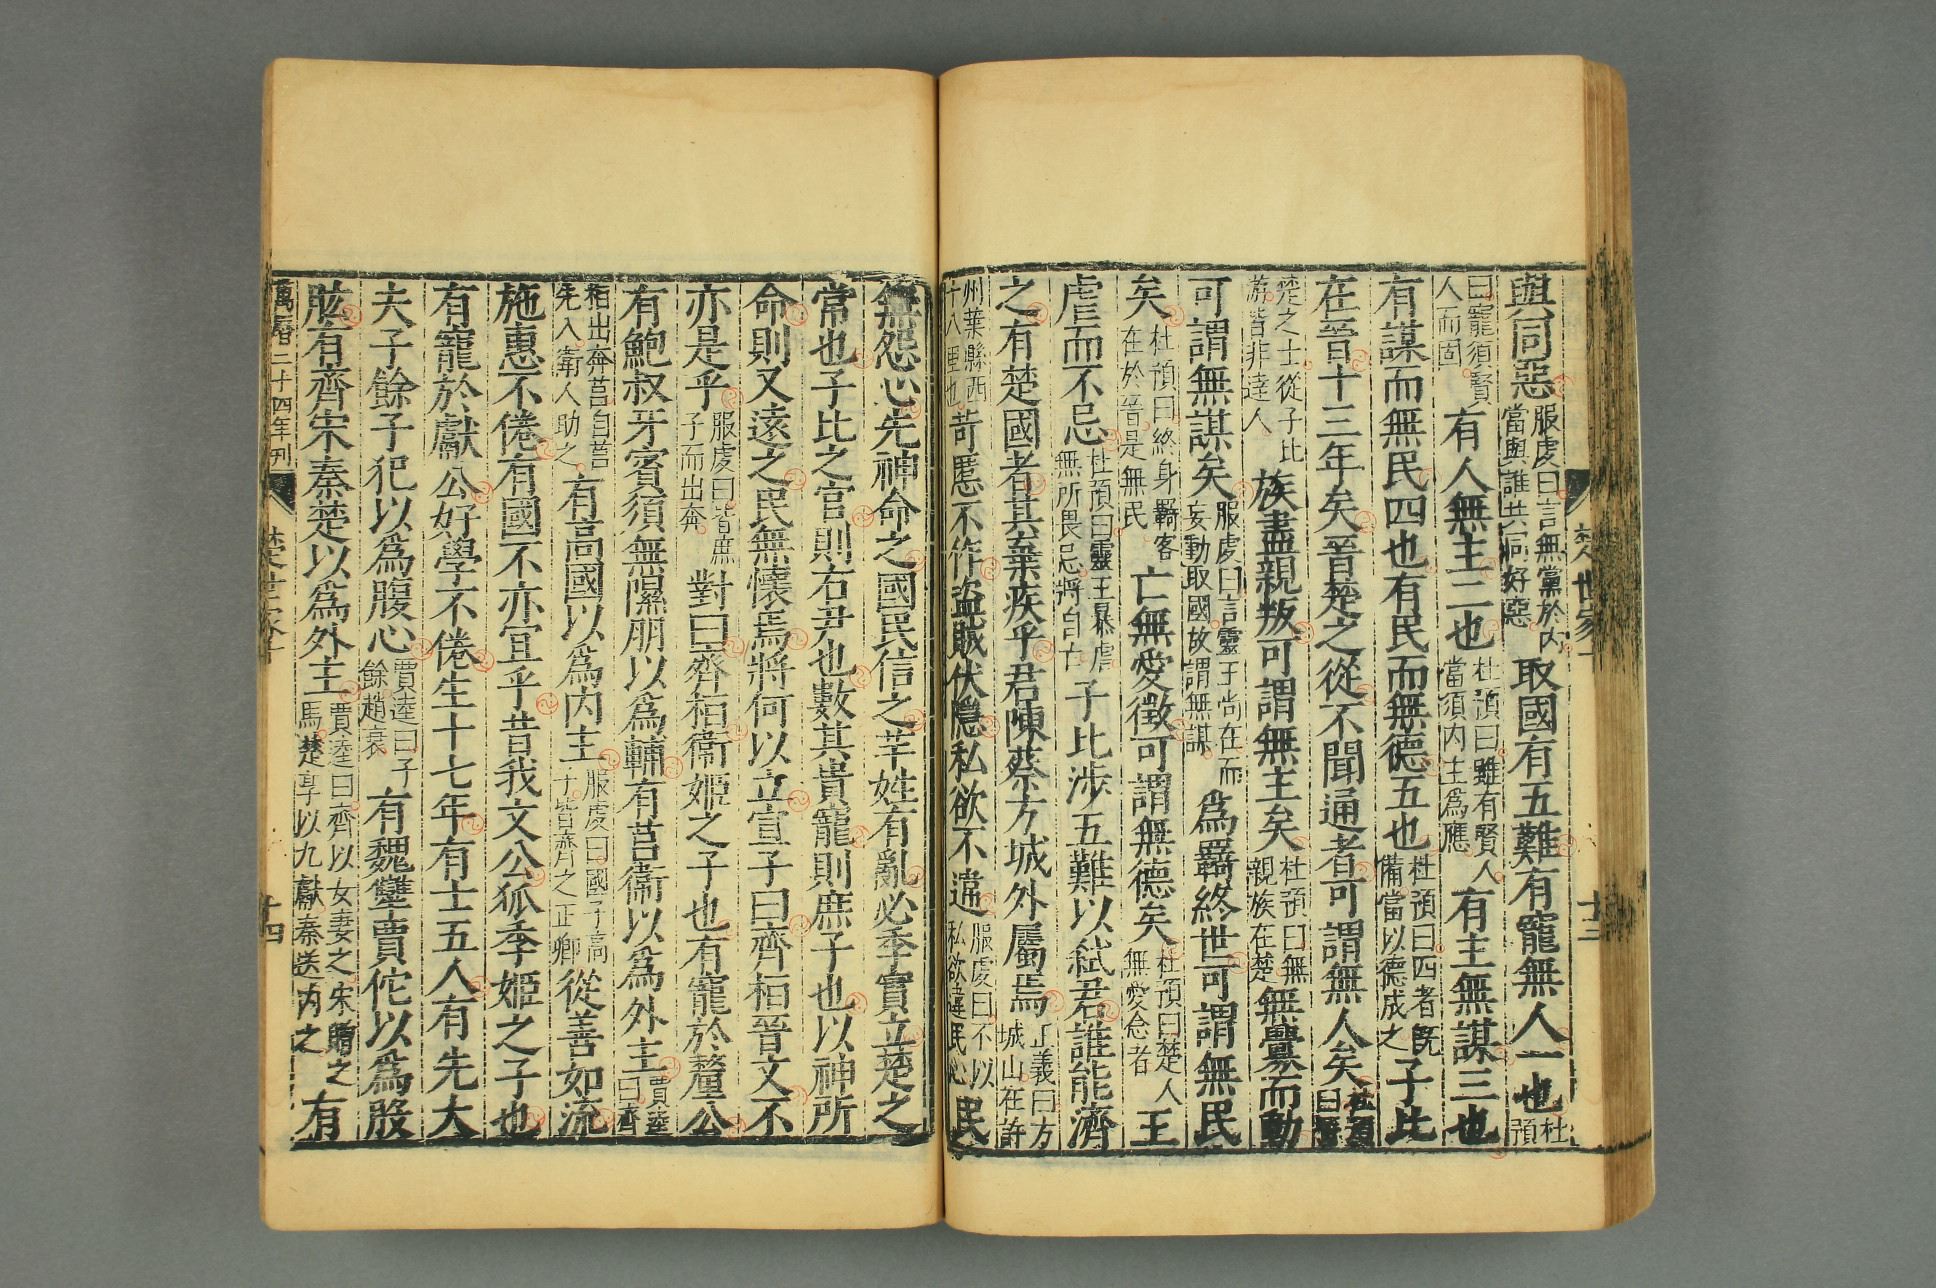 與同惡服虔曰言無黨於内當與誰共同好惡取國有五難有寵無人一也杜預
曰寵須賢人而固有人無主二也杜預曰雖有賢人當須内主爲應有主無謀三也
有謀而無民四也有民而無德五也杜預曰四者既備當以德成之子比
在晉十三年矣晉楚之從不聞通者可謂無人矣杜預曰晉
楚之士從子比游皆非達人族盡親叛可謂無主矣杜預曰無親族在楚無釁而動
可謂無謀矣服虔曰言靈王尚在而妄動取國故謂無謀爲羇終世可謂無民
矣杜預曰終身羇客在於晉是無民亡無愛徵可謂無德矣杜預曰楚人無愛念者王
虐而不忌杜預曰靈王暴虐無所畏忌將自亡子比涉五難以弑君誰能濟
之有楚國者其棄疾乎君陳蔡方城外屬焉正義曰方城山在許
州葉縣西十八里也苛慝不作盜賊伏隱私欲不違服虔曰不以私欲違民心民
楚世家
十三
無怨心先神命之國民信之芊姓有亂必季實立楚之
常也子比之官則右尹也數其貴寵則庶子也以神所
命則又遠之民無懷焉將何以立宣子曰齊桓晉文不
亦是乎服虔曰皆庶子而出奔對曰齊桓衞姬之子也有寵於釐公
有鮑叔牙賓須無隰朋以爲輔有莒衞以爲外主賈逵曰齊
桓出奔莒自莒先入衛人助之有高國以爲内主服虔曰國子高子皆齊之正卿從善如流
施惠不倦有國不亦宜乎昔我文公狐季姬之子也
有寵於獻公好學不倦生十七年有士五人有先大
夫子餘子犯以爲腹心賈逵曰子餘趙衰有魏犫賈佗以爲股
肱有齊宋秦楚以爲外主賈逵曰齊以女妻之宋贈之馬楚享以九獻秦送内之有
萬曆二十四年刊
楚世家
十四